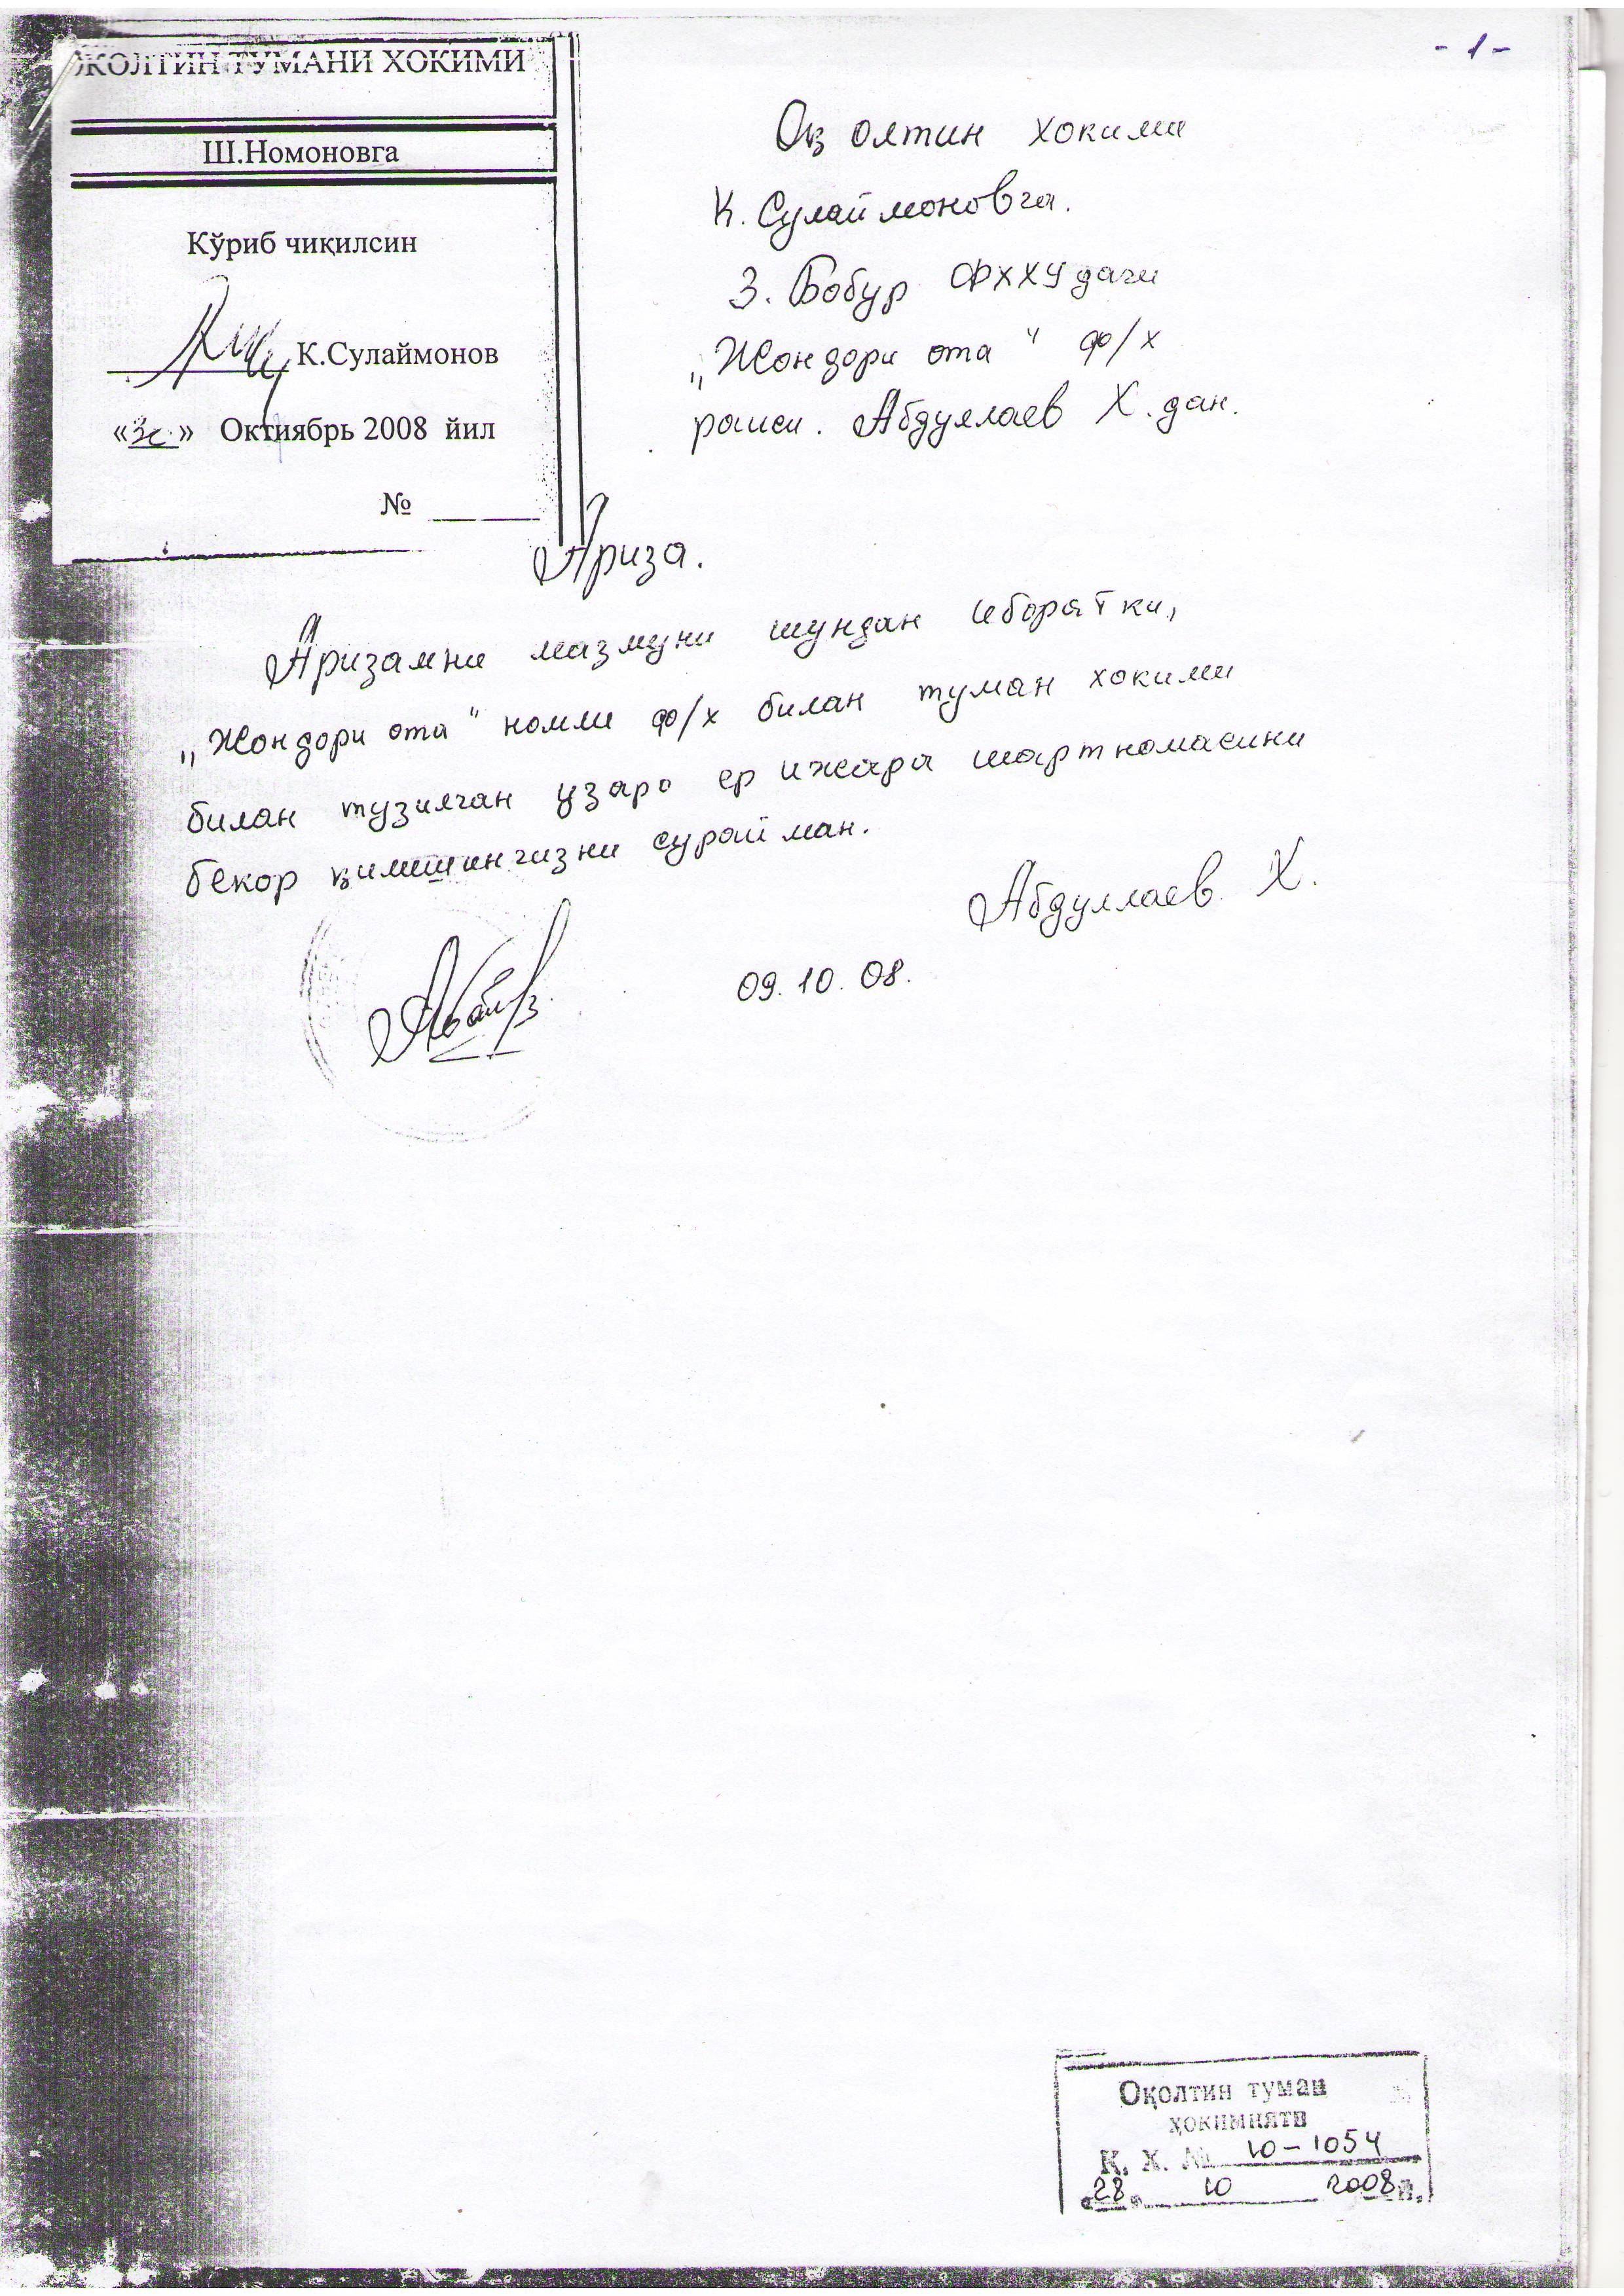 - 1 -
ОҚОЛТИН ТУМАНИ ХОКИМИ
Ш.Номоновга
Кўриб чиқилсин
К.Сулаймонов
« » Октиябрь 2008 йил
№
Оқ олтин хокими
К. Сулаймоновга.
З. Бобур ФХХУдаги
„Жондори ота" ф/х
раиси. Абдуллаев Х.дан.
Ариза.
Аризамни мазмуни шундан иборатки,
„Жондори ота" номли ф/х билан туман хокими
билан тузилган узаро ер ижара шартномасини
бекор қилишингизни сурайман.
Абдуллаев Х.
09.10.08.
Оқолтин туман
ҳокимияти
К. Х. № 10-1054
"28" 10 2008 й.